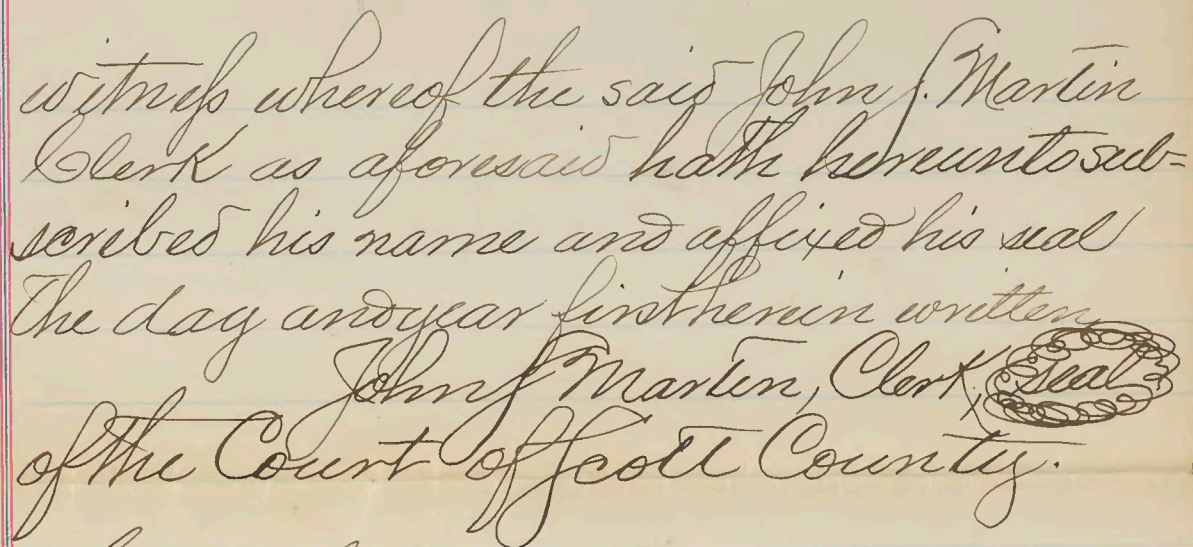 witness whereof the said John S. Martin
Clerk as aforesaid hath hereunto sub=
scribed his name and affixed his seal
The day and year first herein written
John S Martin, Clerk, seal
of the Court of Scott County.